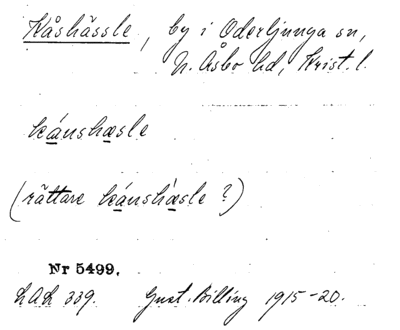 Kåshässle, by i Oderljunga sn,
N. Åsbo hd, Krist. l.
kánshæsle
(rättare kánshæ̀sle ?)
Nr 5499.
LAL 339. Gust. Billing 1915-20.